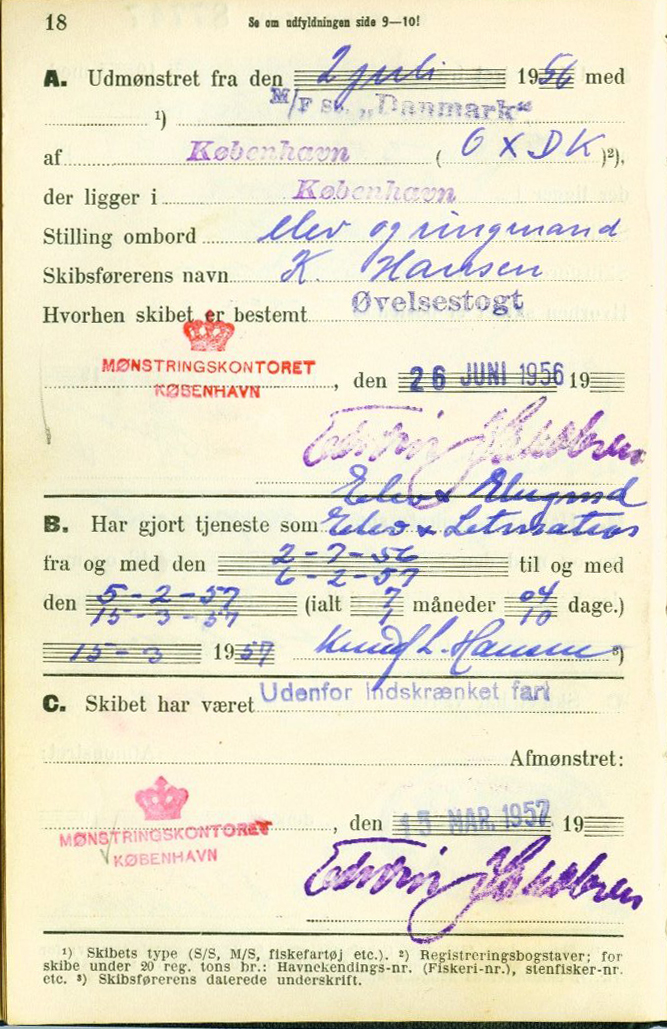 18 Se om udfyldningen side 9—10!
A. Udmønstret fra den 2 juli 1956 med
¹) M/F Sk. „Danmark“
af København ( OXDK )²),
der ligger i København
Stilling ombord elev og ringmand
Skibsførerens navn K. Hansen
Hvorhen skibet er bestemt Øvelsestogt
MØNSTRINGSKONTORET
KØBENHAVN
, den 26 JUNI 1956 19
Elev
B. Har gjort tjeneste som Elev & Letmatros
fra og med den 2-7-56 til og med
6-2-57
den 5-2-57 (ialt 7 måneder 04 dage.)
15-3-57 1 10
15-3 1957 Knud L. Hansen ³)
C. Skibet har været Udenfor Indskrænket fart
Afmønstret:
MØNSTRINGSKONTORET
KØBENHAVN
, den 15 MAR. 1957 19
¹) Skibets type (S/S, M/S, fiskefartøj etc.). ²) Registreringsbogstaver; for
skibe under 20 reg. tons br.: Havnekendings-nr. (Fiskeri-nr.), stenfisker-nr.
etc. ³) Skibsførerens daterede underskrift.